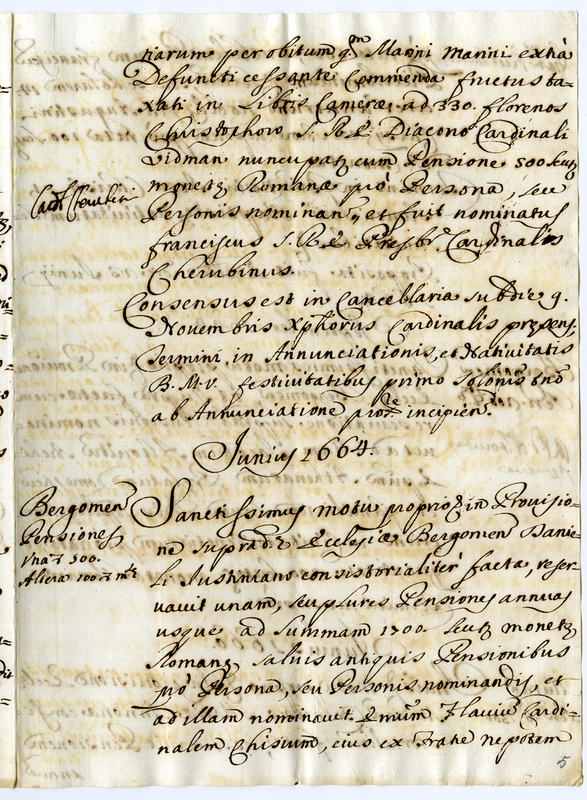 tiarum per obitum qm̄ Marini Marini extrà
Defuncti cessante Commenda fructus ta=
xati in Libris Cameræ ad 330. florenos
Christophoro S. R. E. Diacono Cardinali
Vidman nuncupatʒ cum Pensione 500 scutʒ
monetʒ Romanæ prò Persona, seu
Card. Cherubini
Personis nominan., et fuit nominatus
franciscus S. R. E. Presbr. Cardinalis
Cherubinus.
Consensus est in Cancellaria sub die 9.
Novembris Xpħorus Cardinalis præsens
Termini in Annunciationis, et Nativitatis
B. M. V. festivitatibus primo
ab Annunciatione incipien.
Junius 1664.
Bergomen
Pensiones
Una ꝫ 500.
Altera 100 ꝫ mtʒ
Sanctissimus motu proprio in Provisio-
ne supradʒ Ecclesiæ Bergomen Danie-
li Justiniano consistorialiter facta, reser-
vavit unam, seu plures Pensiones annuas
usque ad summam 1700 scutʒ monetʒ
Romanʒ salvis antiquis Pensionibus
prò Persona, seu Personis nominandis, et
ad illam nominavit Emūm Flavium Cardi-
nalem Chisium, eius ex fratre nepotem
5